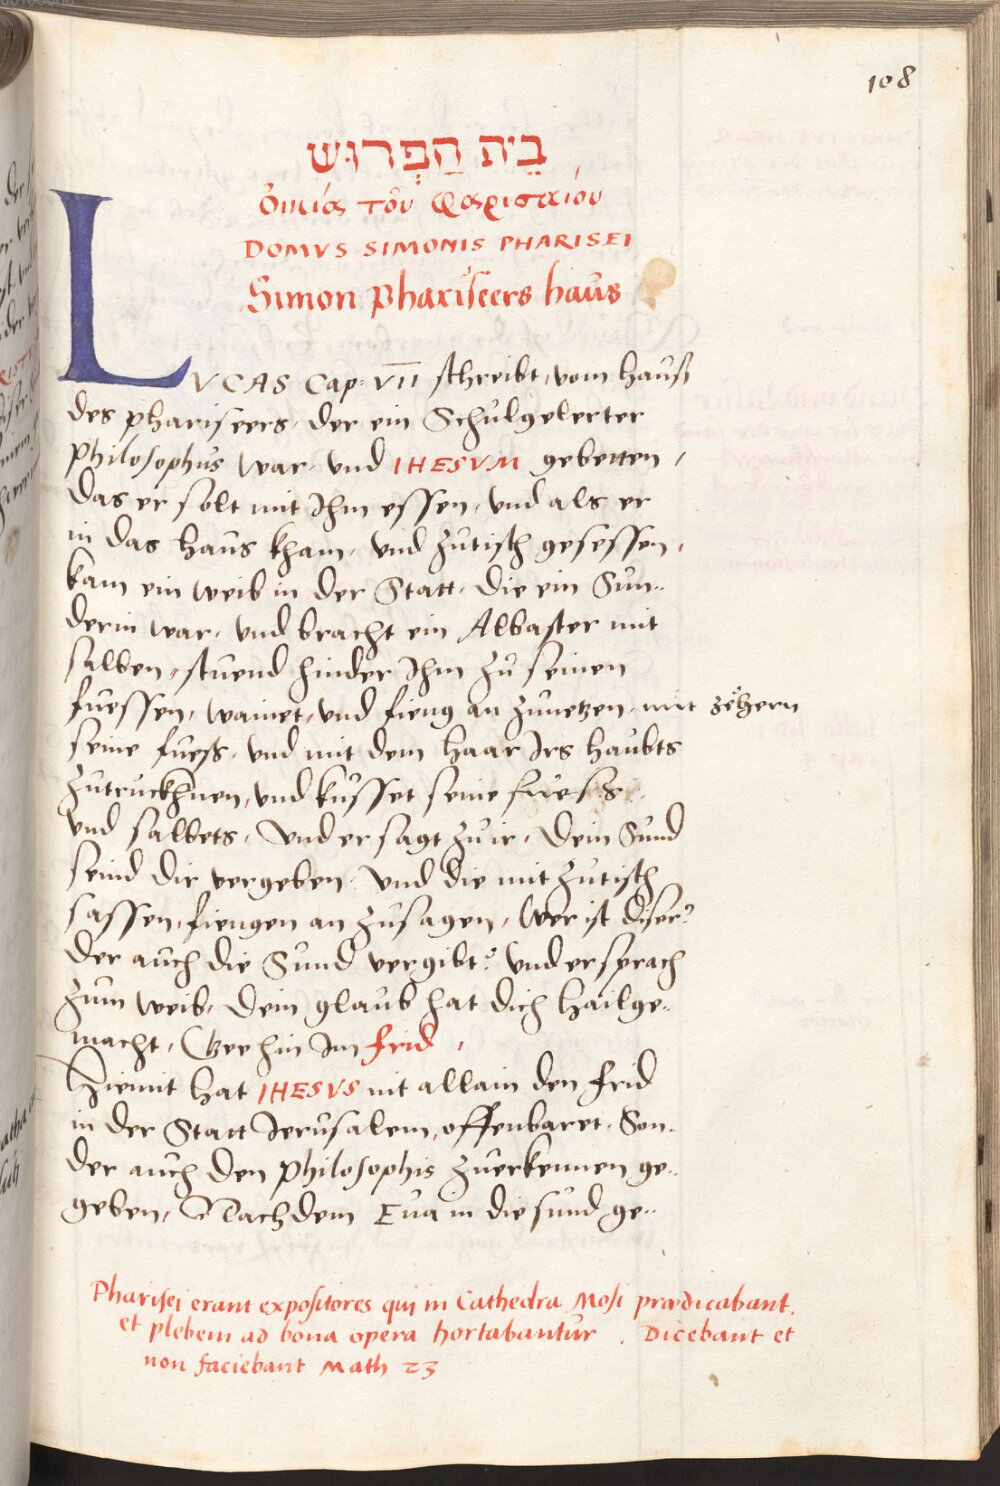 108
בֵּית הַפְּרוּשׁ
Ὀικία τοῦ Φαρισαίου
DOMVS SIMONIS PHARISEI
Simon Phariseers haus
LVCAS Cap: VII schreibt, vom hauß
des phariseers, der ein Schulgelerter
Philosophus war, vnd IHESVM gebetten,
das er solt mit Ihm essen, vnd als er
in das haus kham, vnd zutisch gesessen,
kam ein weib in der Statt, die ein Sun..
derin war, vnd bracht ein Albaster mit
salben, stuend hinder Ihm zu seinen
fuessen, wainet, vnd fieng an zunetzen mit zehern
seine fuess, vnd mit dem haar Irs haubts
zutruckhnen, vnd kusset seine fuess
vnd salbets, vnd er sagt zu ir, dein Sund
seind dir vergeben, vnd die mit zutisch
sassen, fiengen an zusagen, wer ist diser?
der auch die Sund vergibt? vnd er sprach
zum weib, dein glaub hat dich hailge..
macht, Gee hin Im frid,
Hiemit hat IHESVS nit allain den frid
in der Statt Ierusalem, offenbaret, Son..
der auch den philosophis zuerkennen ge..
geben, Nachdem Eua in die sund ge..
Pharisei erant expositores qui in Cathedra Mosi prædicabant,
et plebem ad bona opera hortabantur. Dicebant et
non faciebant Math 23